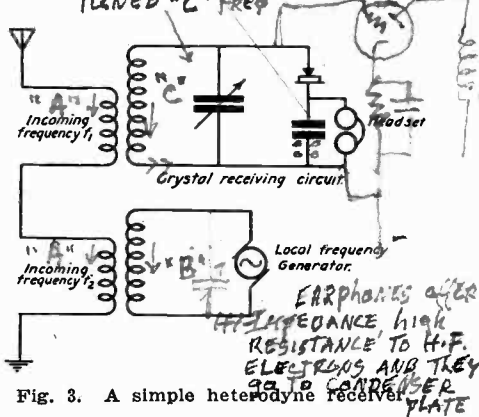 TUNED "C" FREQ
"C"
"A"
Incoming
frequency f₁
Headset
Crystal receiving circuit.
"A"
Incoming
frequency f₂
"B"
Local frequency
Generator.
EARPHONES offER
HI-IMPEDANCE, high
RESISTANCE TO H.F.
ELECTRONS AND THEY
go TO CONDENSER
PLATE
Fig. 3. A simple heterodyne receiver.